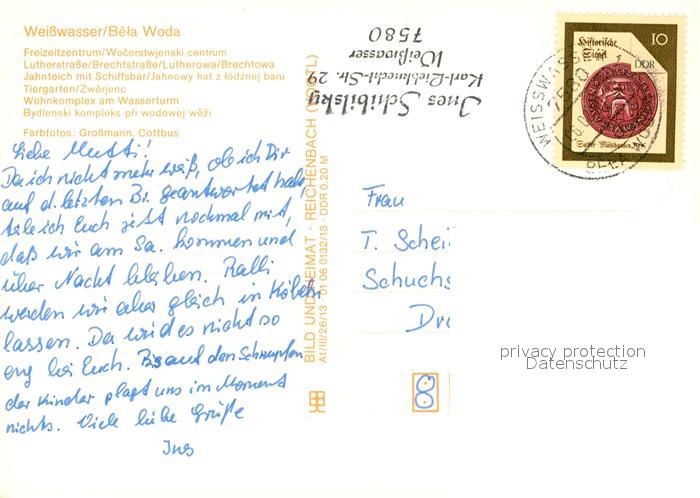 Weißwasser/Běła Woda
Freizeitzentrum/Wočerstwjenski centrum
Lutherstraße/Brechtstraße/Lutherowa/Brechtowa
Jahnteich mit Schiffsbar/Jahnowy hat z łódźnej baru
Tiergarten/Zwěrjenc
Wohnkomplex am Wasserturm
Bydlenski kompleks při wodowej wěži
Farbfotos: Großmann, Cottbus
Liebe Mutti!
Da ich nicht mehr weiß, ob ich Dir
auf d. letzten Br. geantwortet habe,
teile ich Euch jetzt nochmal mit,
daß wir am Sa. kommen und
über Nacht bleiben. Ralli
werden wir aber gleich in
lassen. Da wird es nicht so
eng bei Euch. Bis auf den Schnupfen
der Kinder plagt uns im Moment
nichts. Viele liebe Grüße
Ines
BILD UND HEIMAT · REICHENBACH (VOGTL)
A1/III/26/13 · 01 06 0132/13 · DDR 0,20 M
Ines Schibilsky
Karl-Liebknecht-Str. 29
Weißwasser
7580
Historische
Siegel
10
DDR
WEISSWASSER
Frau
T. Schei
Schuchs
Dre
8
privacy protection
Datenschutz